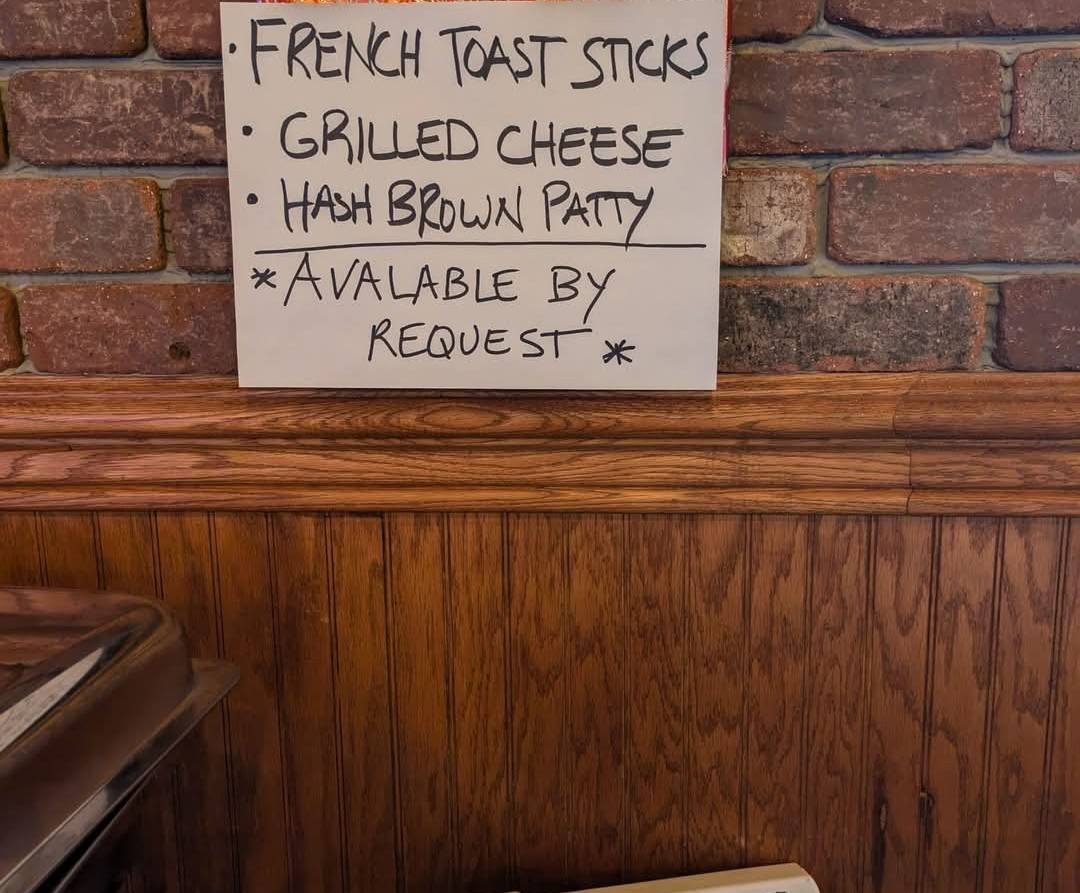 · FRENCH TOAST STICKS
· GRILLED CHEESE
· HASH BROWN PATTY
* AVALABLE BY
REQUEST *